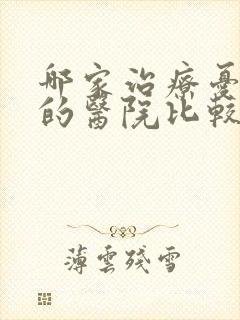 那家治療憂
的醫院比較
薄雲殘雪